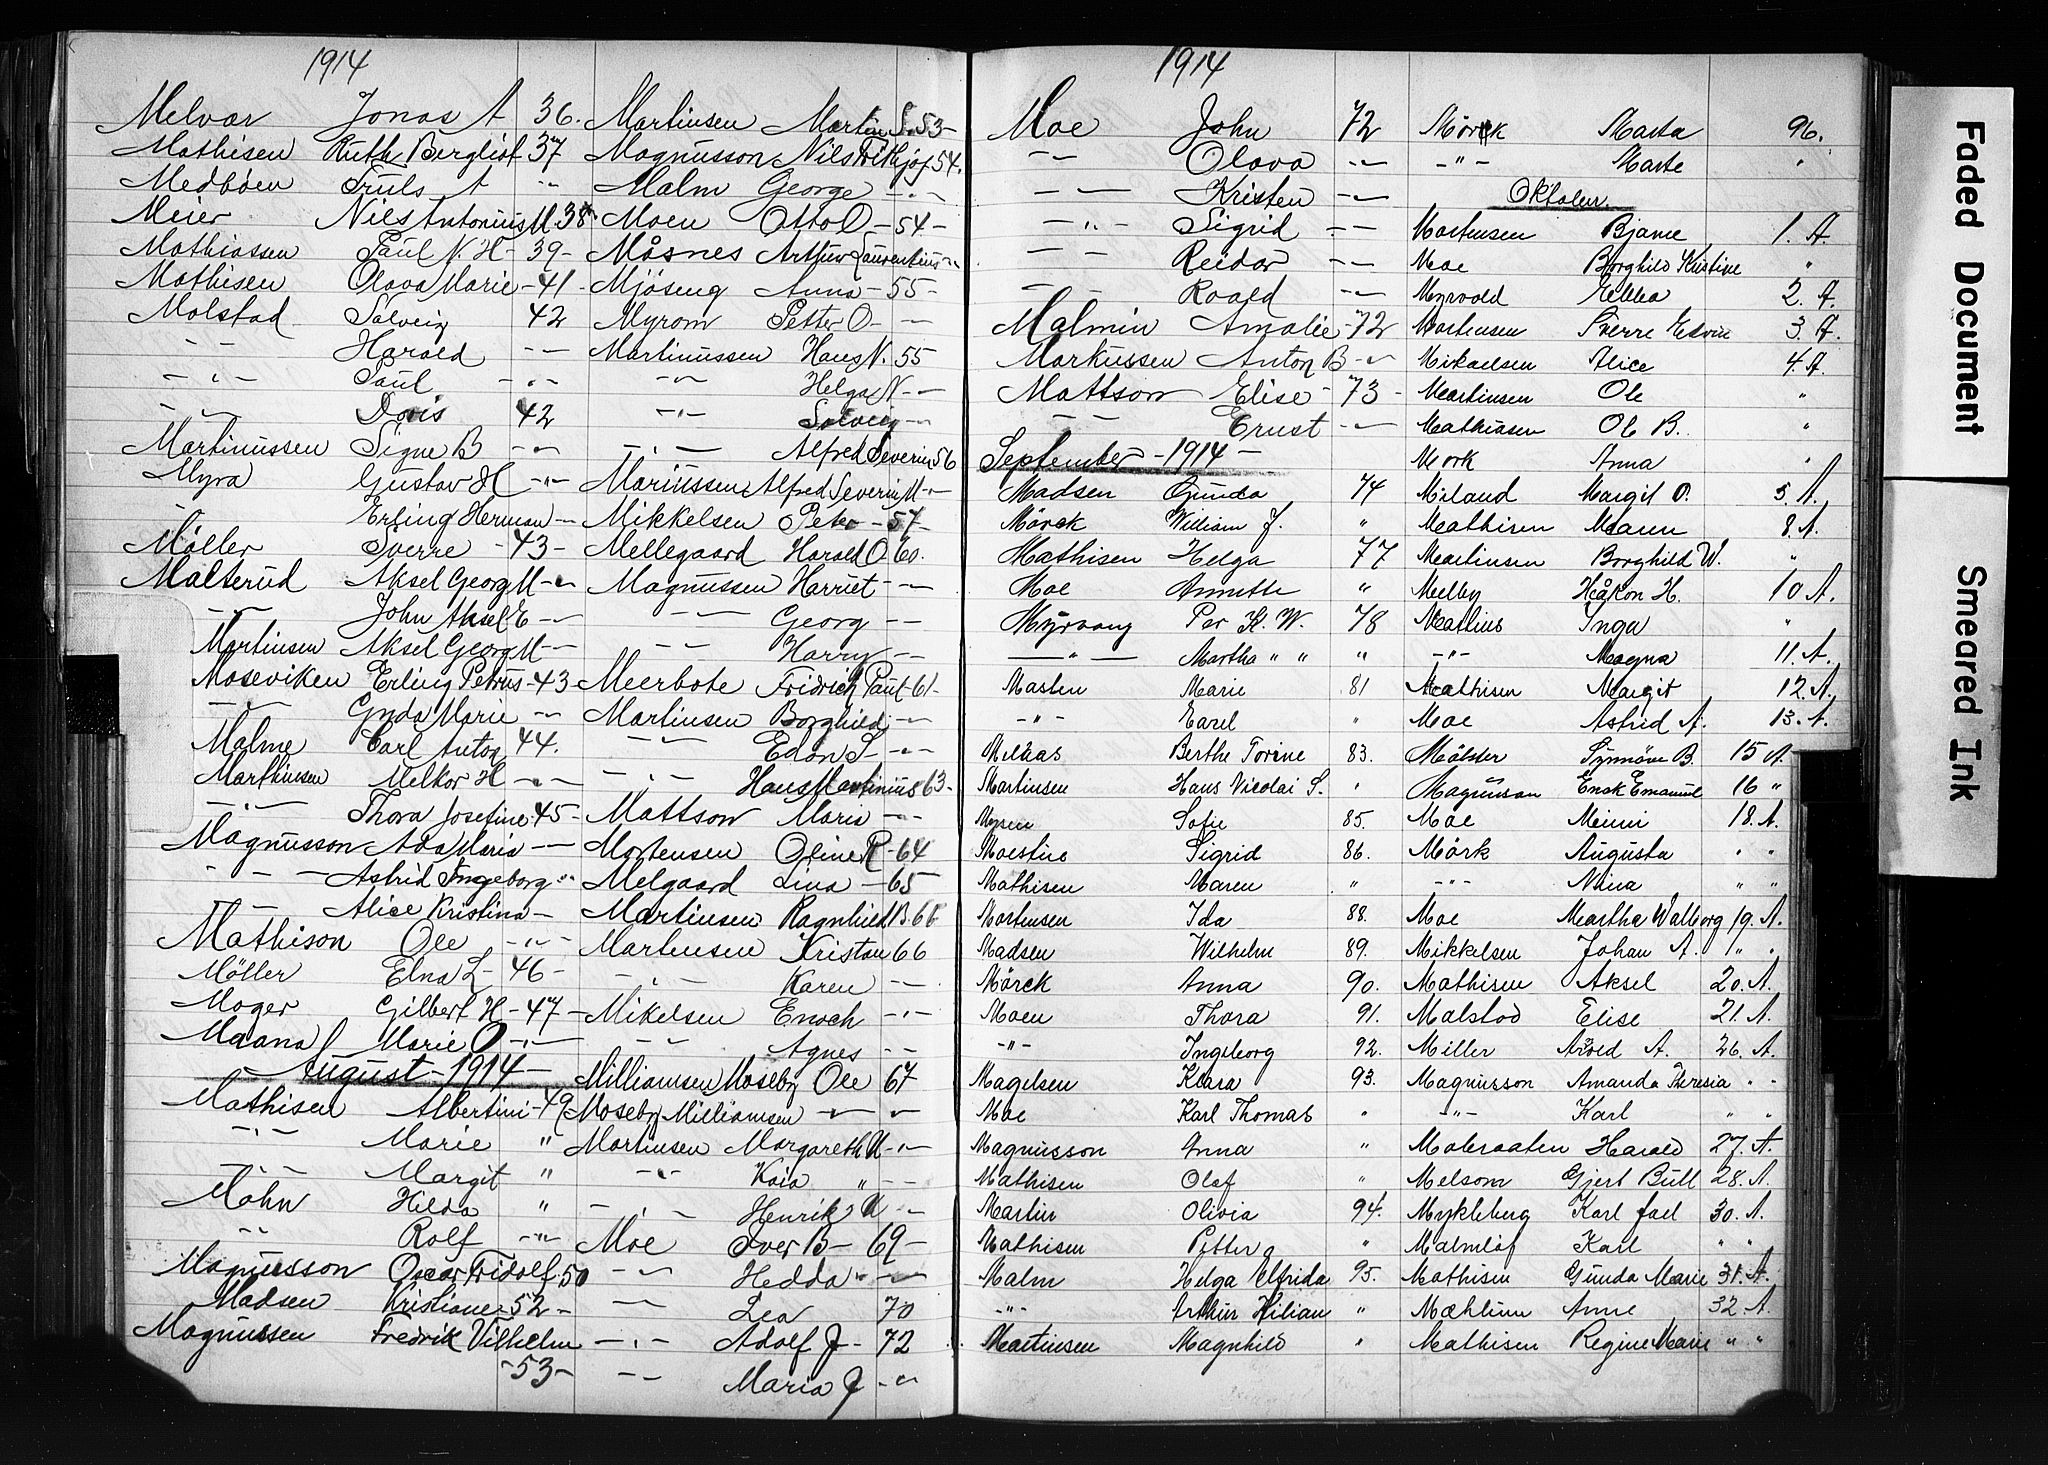 1914
Melvar Jonas A 36.
Mathisen Ruth Bergliot 37
Medböen Truls A -"-
Meier Nils Antonius M. 38
Mathiassen Paul N. H - 39 -
Mathisen Olava Marie - 41 -
Molstad Solveig 42
-"- Harald -"-
-"- Paul -"-
-"- Doris 42
Martinussen Signe B -"-
Myra Gustav H -"-
- Erling Herman -
Möller Sverre - 43 -
Malterud Aksel Georg M -"-
-"- John Aksel E -"-
Martinsen Aksel Georg M -
Moseviken Erling Petrus - 43
-"- Gyda Marie -"-
Malme Carl Anton 44.
Marthinsen Melkor H -"-
-"- Thora Josefine 45 -
Magnusson Ada Maria -
-"- Astrid Ingeborg "
-"- Alice Kristina -
Mathison Ole -"-
Möller Elna L - 46 -
Moger Gilbert H - 47 -
Maana Marie O -"-
August - 1914 -
Mathisen Albertini - 49
-"- Marie "
-"- Margit "
Mohn Hilda "
-"- Rolf -"-
Magnusson Oscar Fridolf. 50
Madsen Kristiane - 52 -
Magnussen Fredrik Vilhelm
- 53 -
Martinsen Martin S. 53 -
Magnusson Nils Frithjof 54.
Malm George -"-
Moen Otto O - 54 -
Måsnes Arthur Laurentius -"-
Mjöseng Anna - 55 -
Myrom Petter O - -
Martinussen Hans N. 55
-"- Helga N - -
-"- Solveig - -
-"- Alfred Severin 56
Mariussen Alfred Severin M -"-
Mikkelsen Peter - 57 -
Mellegaard Harald O 60.
Magnussen Harriet - -
-"- Georg - -
-"- Harry - -
Meerbote Fridrich Paul - 61 -
Martinsen Borghild -"-
-"- Edon S -"-
-"- Hans Martinius 63 -
Mattson Maria -"-
Mortensen Oline R - 64
Melgaard Lina - 65
Martinsen Ragnhild B. 66
Martinsen Kristan 66
-"- Karen - -
Mikelsen Enoch -"-
-"- Agnes - -
Milliamsen Moseby Ole 67
Moseby Milliamsen -"- -"-
Martinsen Margareth U -"-
-"- Kaia " - -
-"- Henrik U - -
Moe Iver B - 69 -
-"- Hedda " -"-
-"- Lea 70
-"- Adolf J - 72
-"- Maria J -"-
1914
Moe John 72
-"- Olava -"-
-"- Kristen -"-
-"- Sigrid - -
-"- Reidar -"-
-"- Roald -"-
Malmin Amalie - 72
Markussen Anton B -"-
Mattson Elise - 73 -
-"- Ernst -"-
September - 1914 -
Madsen Gunda 74
Mörck William J. "
Mathisen Helga 77
Moe Annette "
Myrvang Per K. W. 78
-"- Martha " " "
Masten Marie 81
-"- Earel "
Melhas Berthe Torine 83.
Martinsen Hans Nicolai S. "
Mysen Sofie 85.
Moestue Sigrid 86.
Mathisen Maren "
Mortensen Ida 88.
Madsen Wilhelm 89.
Mörck Anna 90.
Moen Thora 91.
-"- Ingeborg 92.
Magelsen Klara 93.
Moe Karl Thomas "
Magnusson Anna "
Mathisen Olaf "
Martin Olivia 94.
Mathisen Petter "
Malm Helga Elfrida 95.
-"- Arthur Kilian "
Martinsen Magnhild "
Mörck Marta 96.
-"- Marte "
Oktober.
Mortensen Bjarne 1. A.
Moe Borghild Kristine "
Myrvold Ebba 2. A.
Mortensen Sverre Edvin 3. A.
Mikaelsen Alice 4. A.
Martinsen Ole "
Mathiasen Ole B. "
Mork Anna "
Miland Margit O. 5. A.
Mathisen Maren 8. A.
Martinsen Borghild W. "
Melby Håkon H. 10 A.
Mathius Inga "
-"- Magna 11. A.
Mathisen Margit 12. A.
Moe Astrid A. 13. A.
Mölster Synnöve B. 15 A.
Magnusson Enok Emanuel 16 "
Moe Mimi 18. A.
Mörk Augusta " "
-"- Nina " "
Moe Martha Walborg 19. A.
Mikkelsen Johan A. " "
Mathisen Aksel 20. A.
Malstad Elise 21. A.
Miller Arvid A. 26. A.
Magnusson Amanda Theresia " "
-"- Karl " "
Mobraaten Harald 27. A.
Melsom Gjert Bull 28. A.
Mykleberg Karl Joel 30. A.
Malmlöf Karl " "
Mathisen Gunda Marie 31. A.
Mæhlum Anne 32 A.
Mathisen Regine Marie " "
Faded Document
Smeared Ink